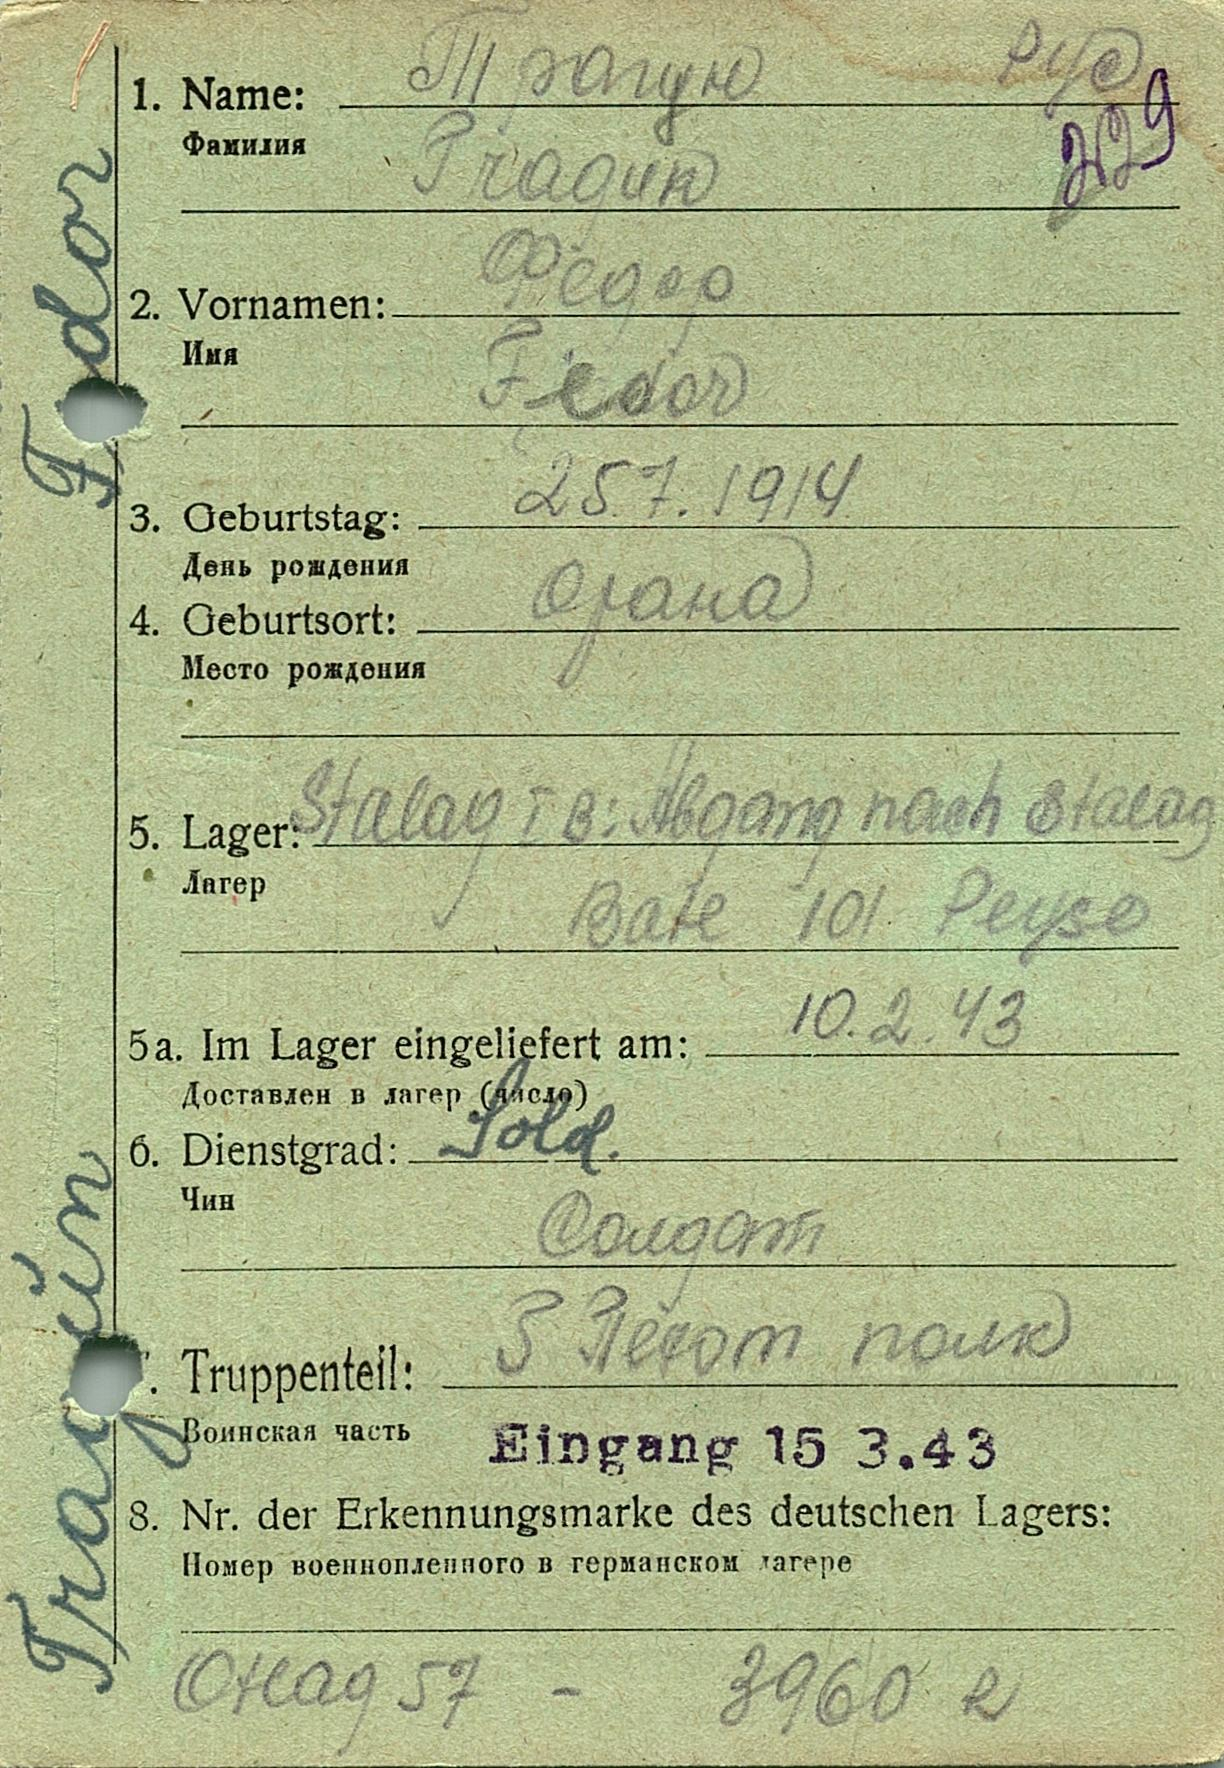 Трагин Рус
1. Name:
Фамилия
229
Tragin
Федор
2. Vornamen:
Имя
Fedor
25.7.1914
3. Geburtstag:
День рождения
4. Geburtsort:
Место рождения
Stalag I B: Abgang nach Stalag
5. Lager:
Лагер
101
10.2.43
5a. Im Lager eingeliefert am:
Доставлен в лагер (число)
6. Dienstgrad: Sold.
Чин
Солдат
Пехот полк
7. Truppenteil:
Воинская часть
Eingang 15 3.43
8. Nr. der Erkennungsmarke des deutschen Lagers:
Номер военнопленного в германском лагере
57 - 3960
Tragin Fedor